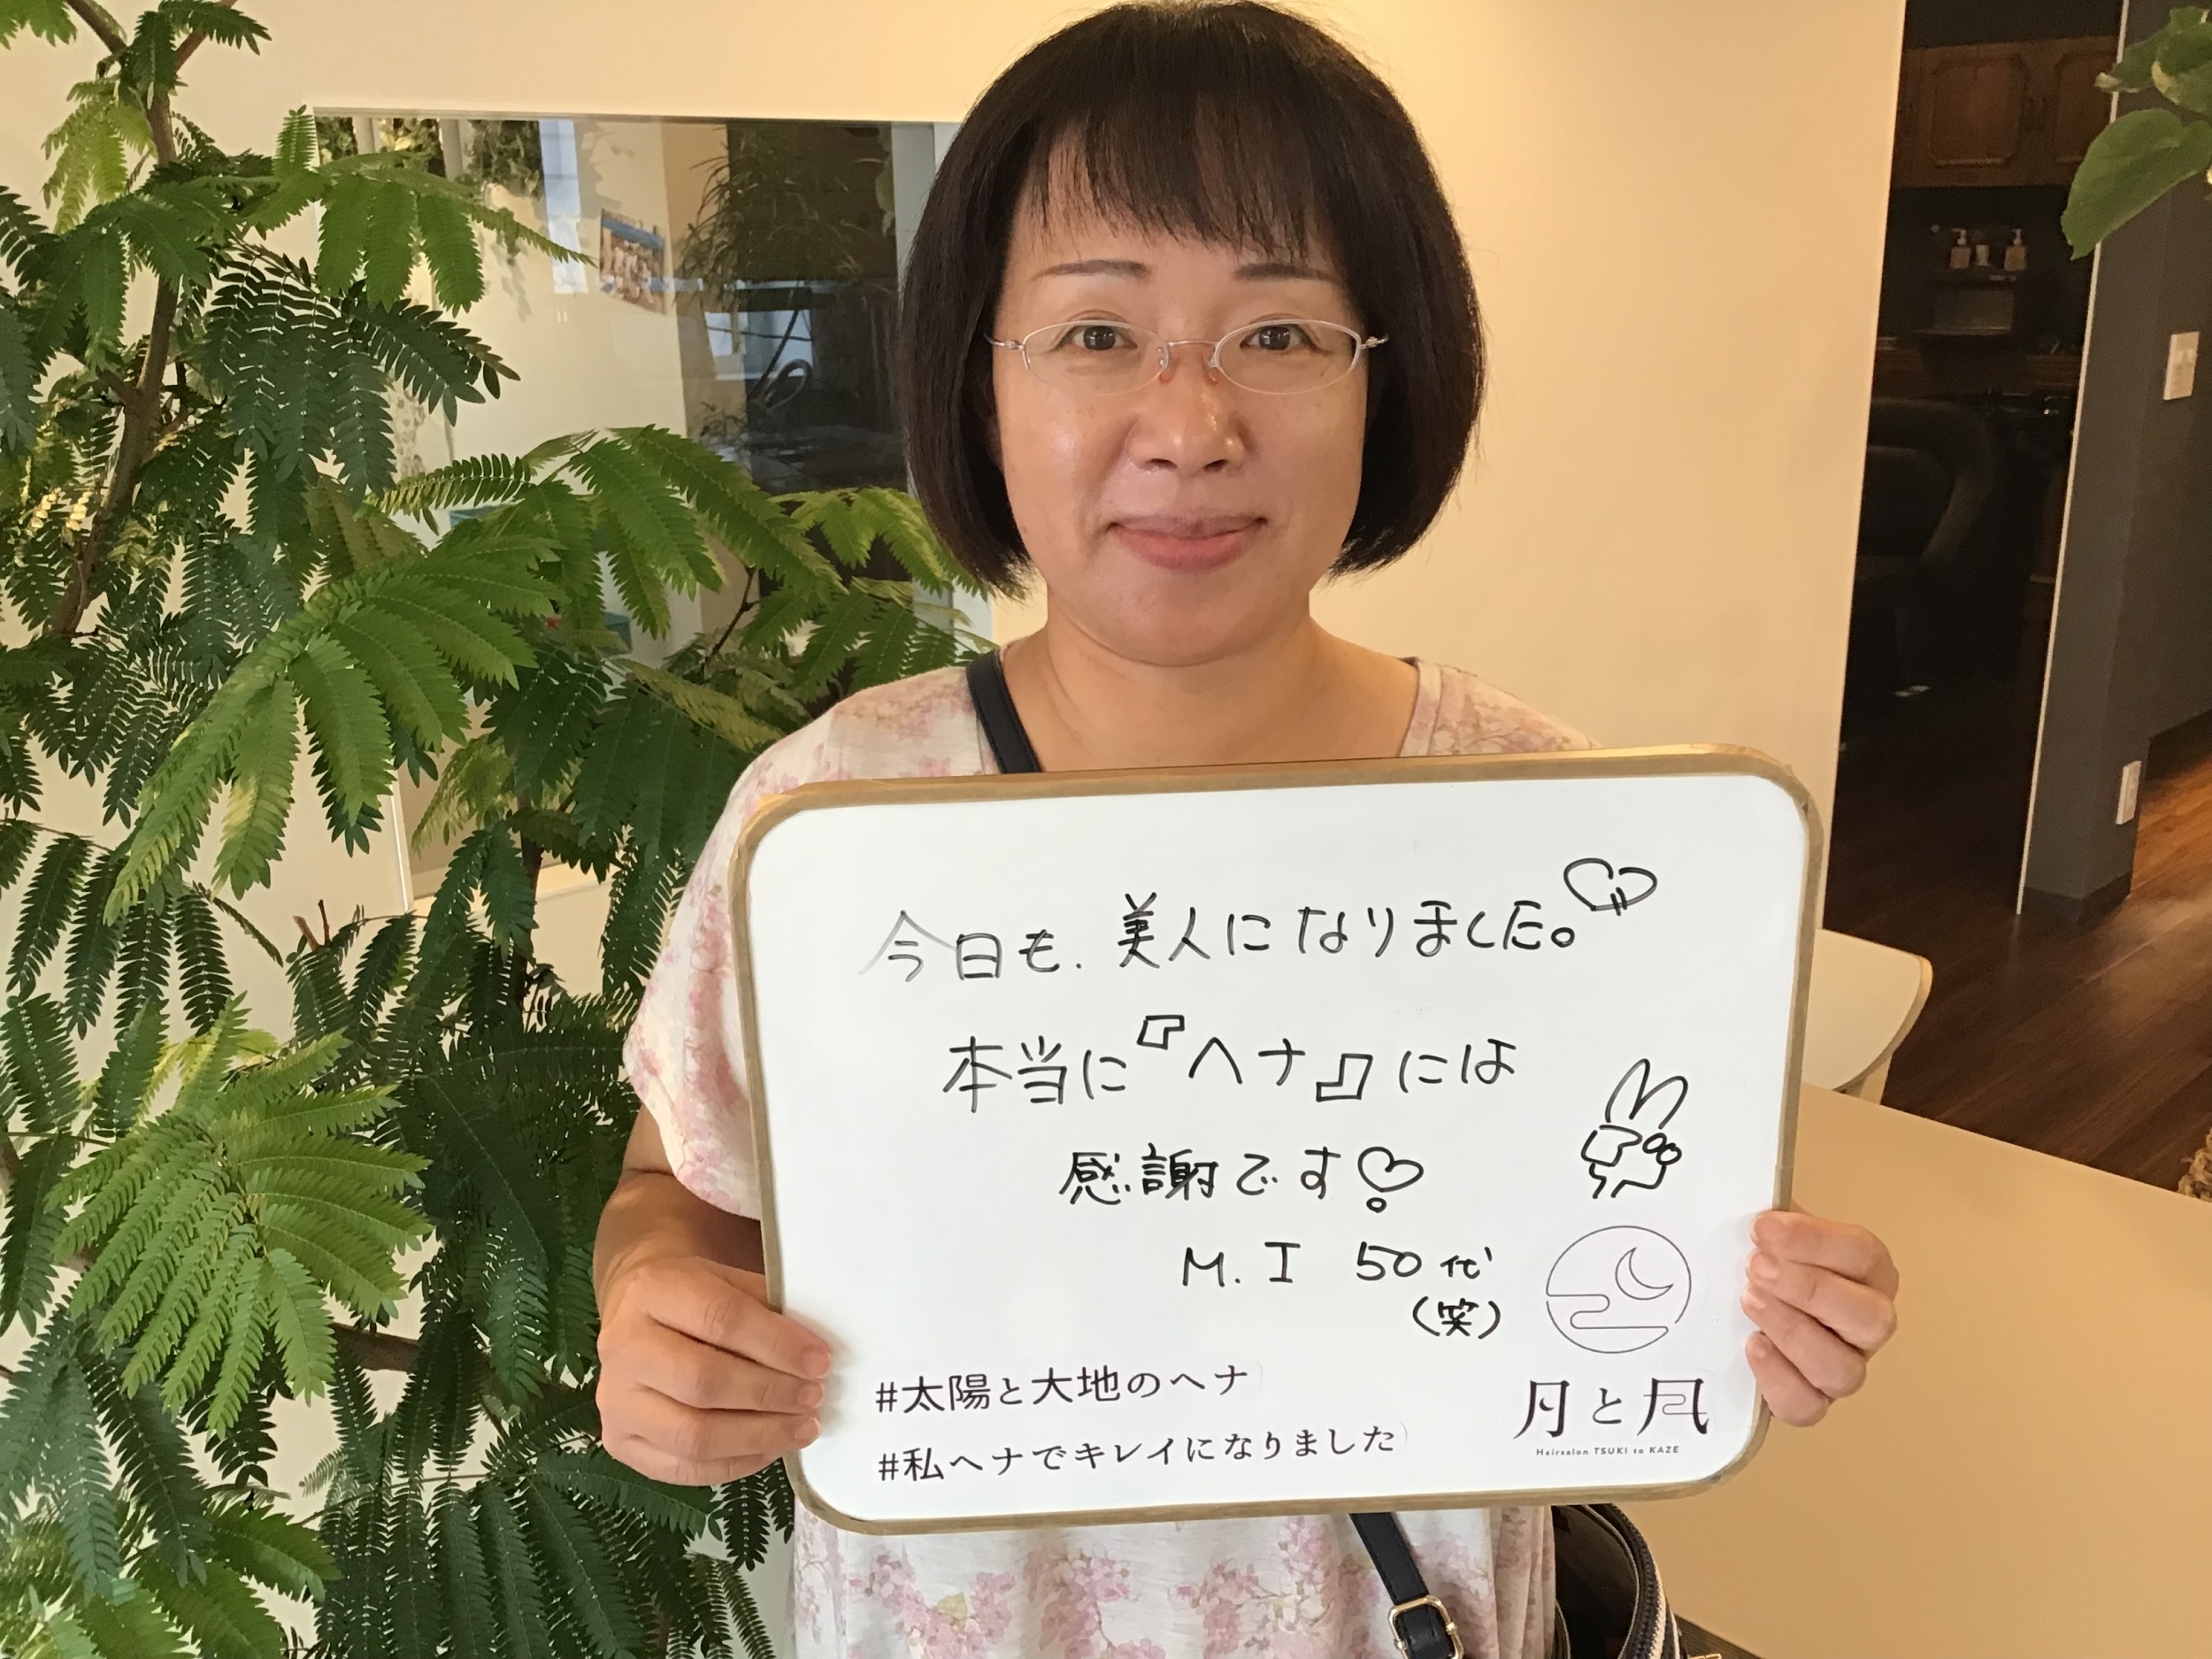 今日も、美人になりました。
本当に『ヘナ』には
感謝です
M. I 50代
(笑)
#太陽と大地のヘナ
#私ヘナでキレイになりました
月と風
Hairsalon TSUKI to KAZE